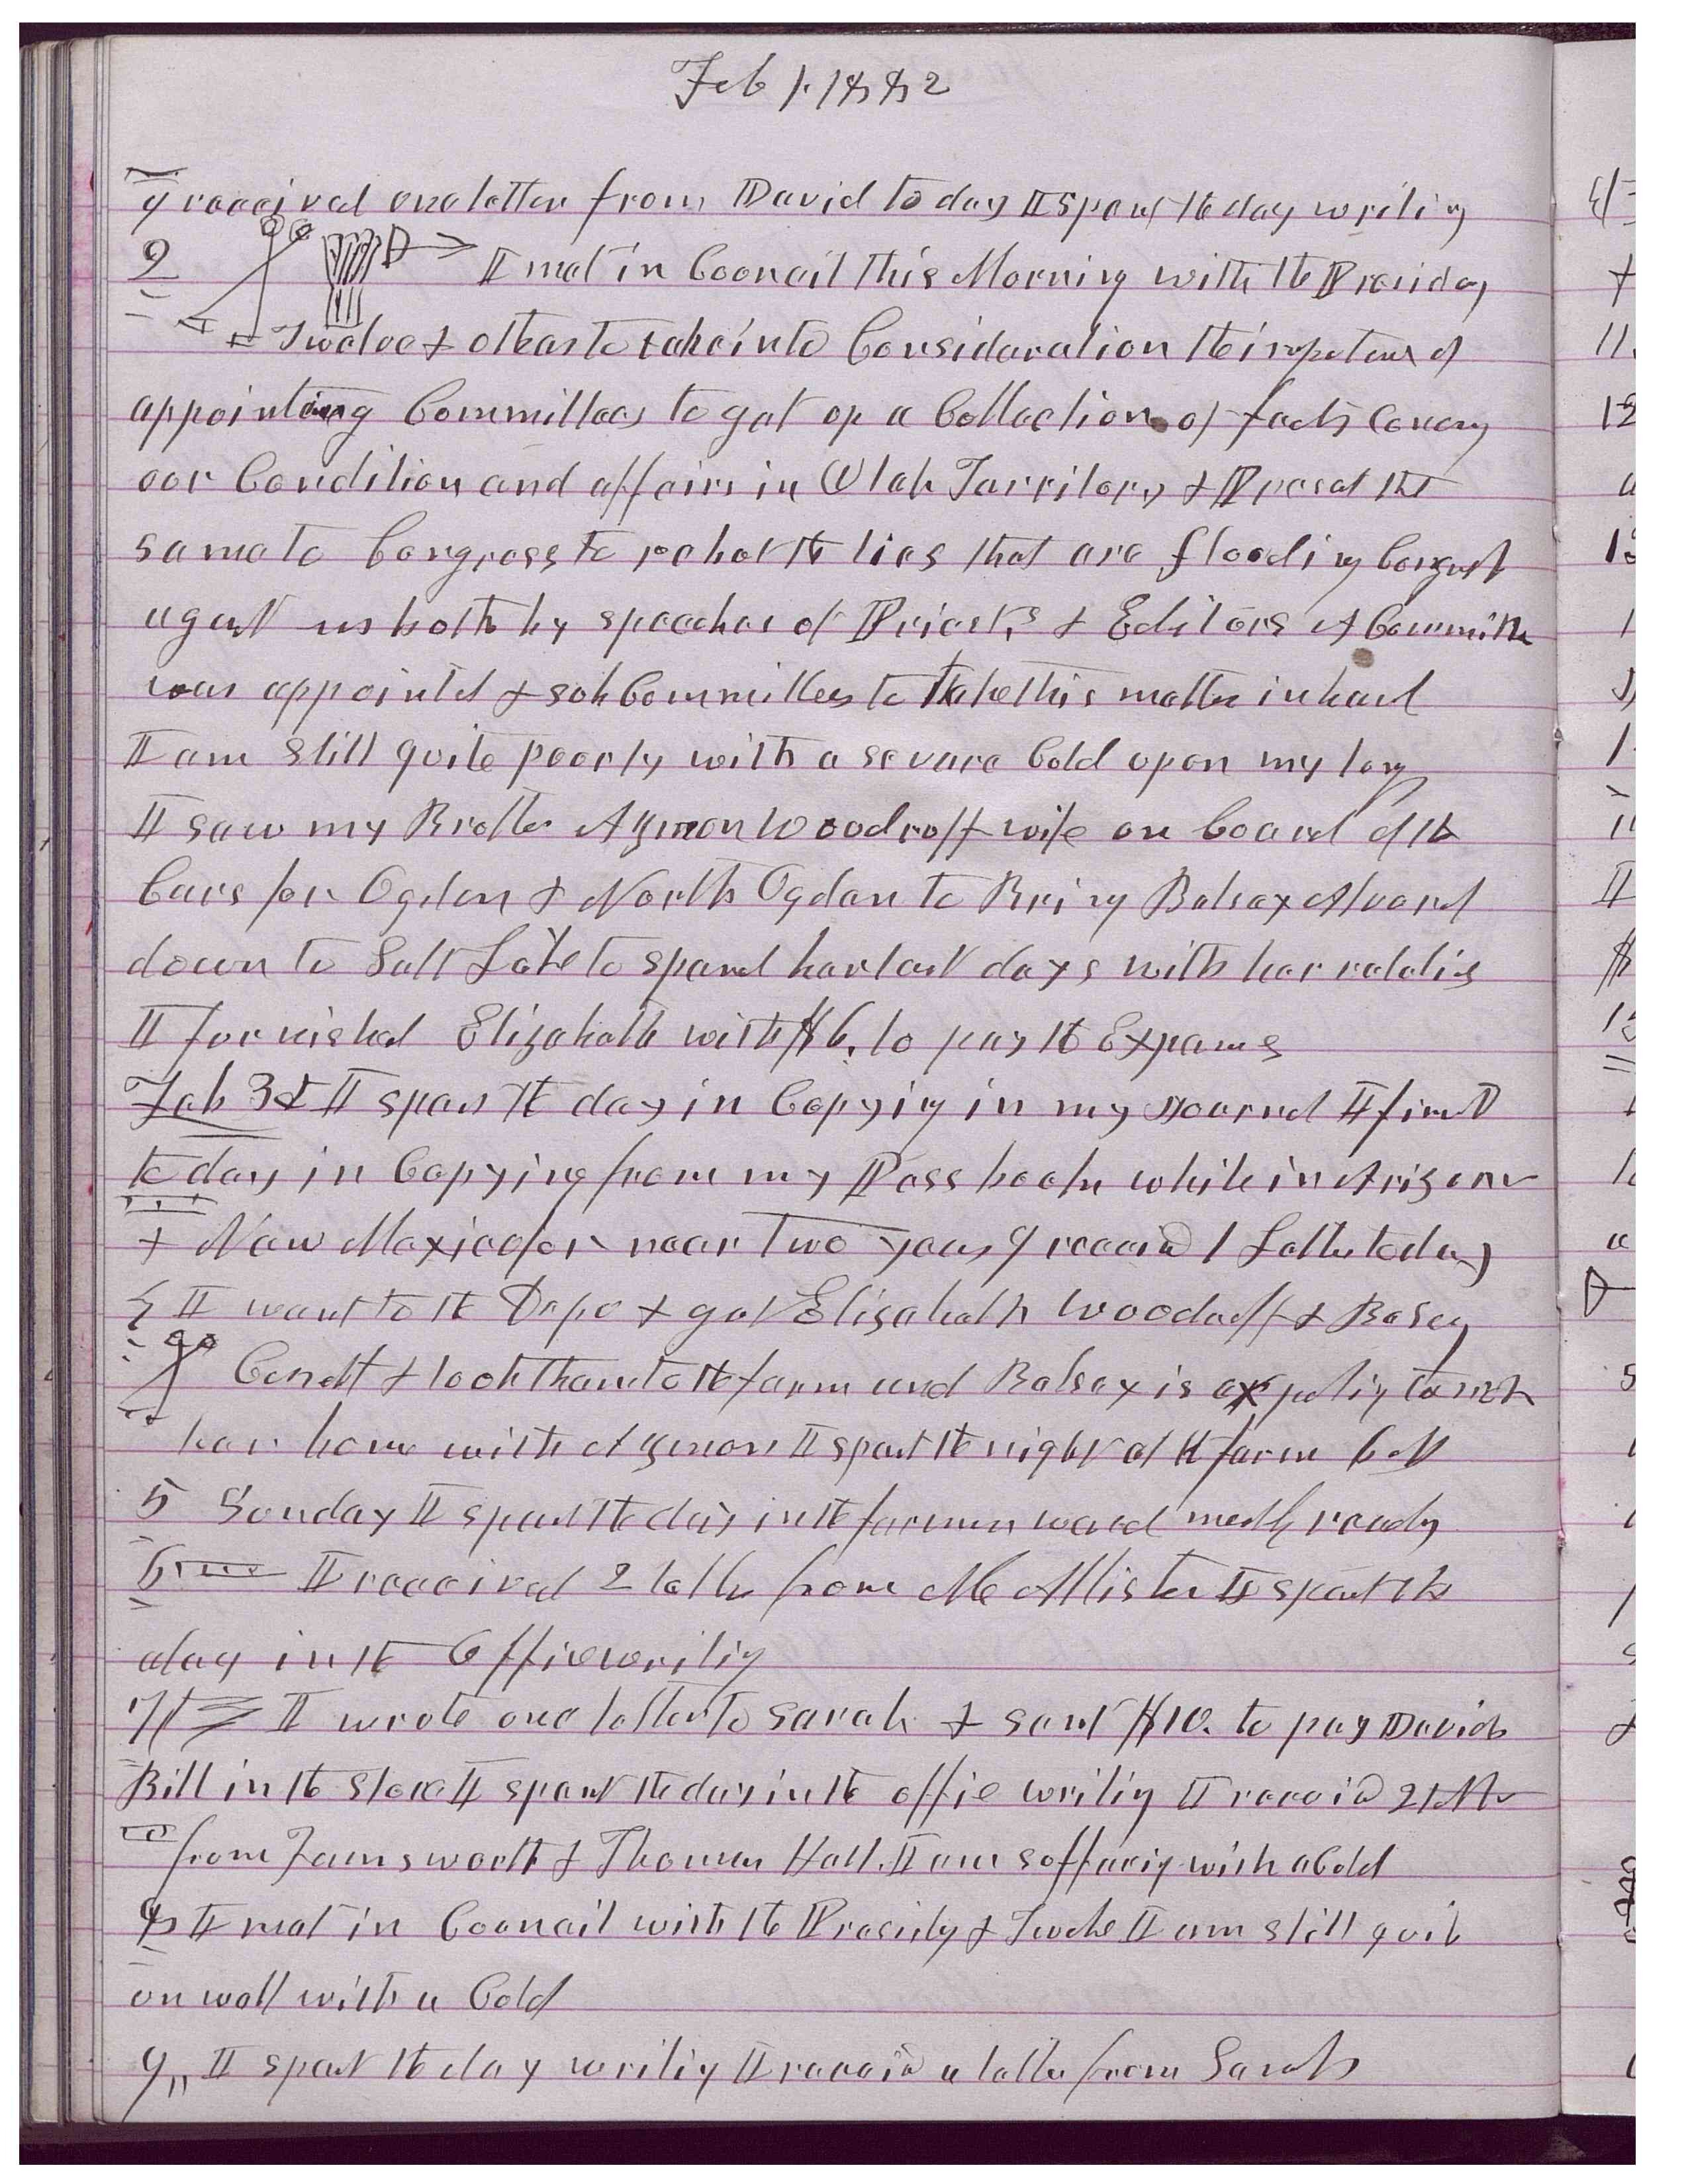 Feb 1. 1882
I received one letter from David to day I spent the day writing
2 I met in Council this Morning with the Presidency
Twelve & others to take into Consideration the importance of
appointing Committees to get up a Collection of facts Concerning
our Condition and affairs in Utah Territory & Present the
same to Congress to rebut the lies that are flooding Congress
against us both by speeches of Priests & Editors A Committee
was appointed & sub Committees to take this matter in hand
I am still quite poorly with a severe Cold upon my lungs
I saw my Brother Azmon Woodruff wife on board of the
Cars for Ogden & North Ogden to Bring Betsey Alvord
down to Salt Lake to spend her last days with her relatives
I furnished Elizabeth with $6. to pay the Expenses
Feb 3d I spent the day in Copying in my Journal I finished
to day in Copying from my Pass book while in Arizona
& New Mexico for near Two years I received 1 Letter to day
4 I went to the Depo & got Elizabeth Woodruff & Betsey
& took them to the farm and Betsey is expecting to make
her home with Azmon I spent the night at the farm
5 Sunday I spent the day in the farmers ward mostly reading
6 I received 2 letters from McAllister I spent the
day in the Office writing
7 I wrote one letter to Sarah & sent $10. to pay Davids
Bill in the store I spent the day in the office writing I received 2 letters
from Farnsworth & Thomas Hall. I am suffering with a Cold
8 I met in Council with the Presidency & Twelve I am still quite
un well with a Cold
9 I spent the day writing I received a letter from Sarah